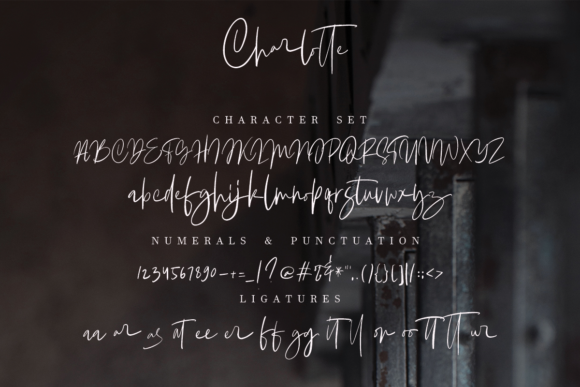 Charlotte
CHARACTER SET
ABCDEFGHIJKLMNOPQRSTUVWXYZ
abcdefghijklmnopqrstuvwxyz
NUMERALS & PUNCTUATION
1234567890-+=_!?@#$&*"',.(/{}[]|/:;<>
LIGATURES
aa ar as at ee er ff gg it ll or oo tt tt ur